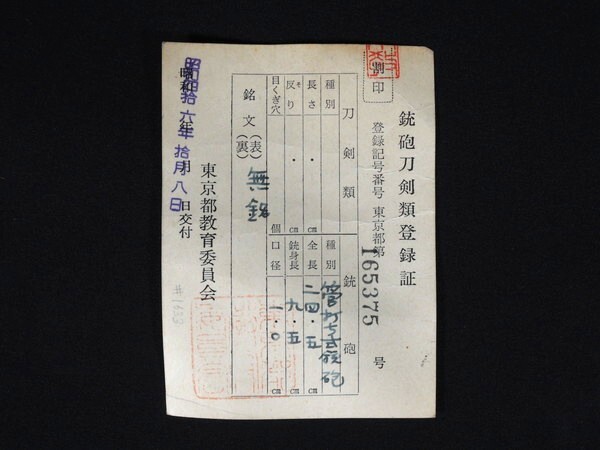 銃砲刀剣類登録証
割印
登録記号番号 東京都第 165375 号
刀剣類
種別
長さ ・ cm
反り ・ cm
そ
目くぎ穴 個
銃砲
種別 管打ち式銃砲
全長 二四・五 cm
銃身長 九・五 cm
口径 一・〇 cm
銘文 (表) (裏) 無銘
東京都教育委員会
昭和 年 月 日交付
昭和四拾六年拾月八日